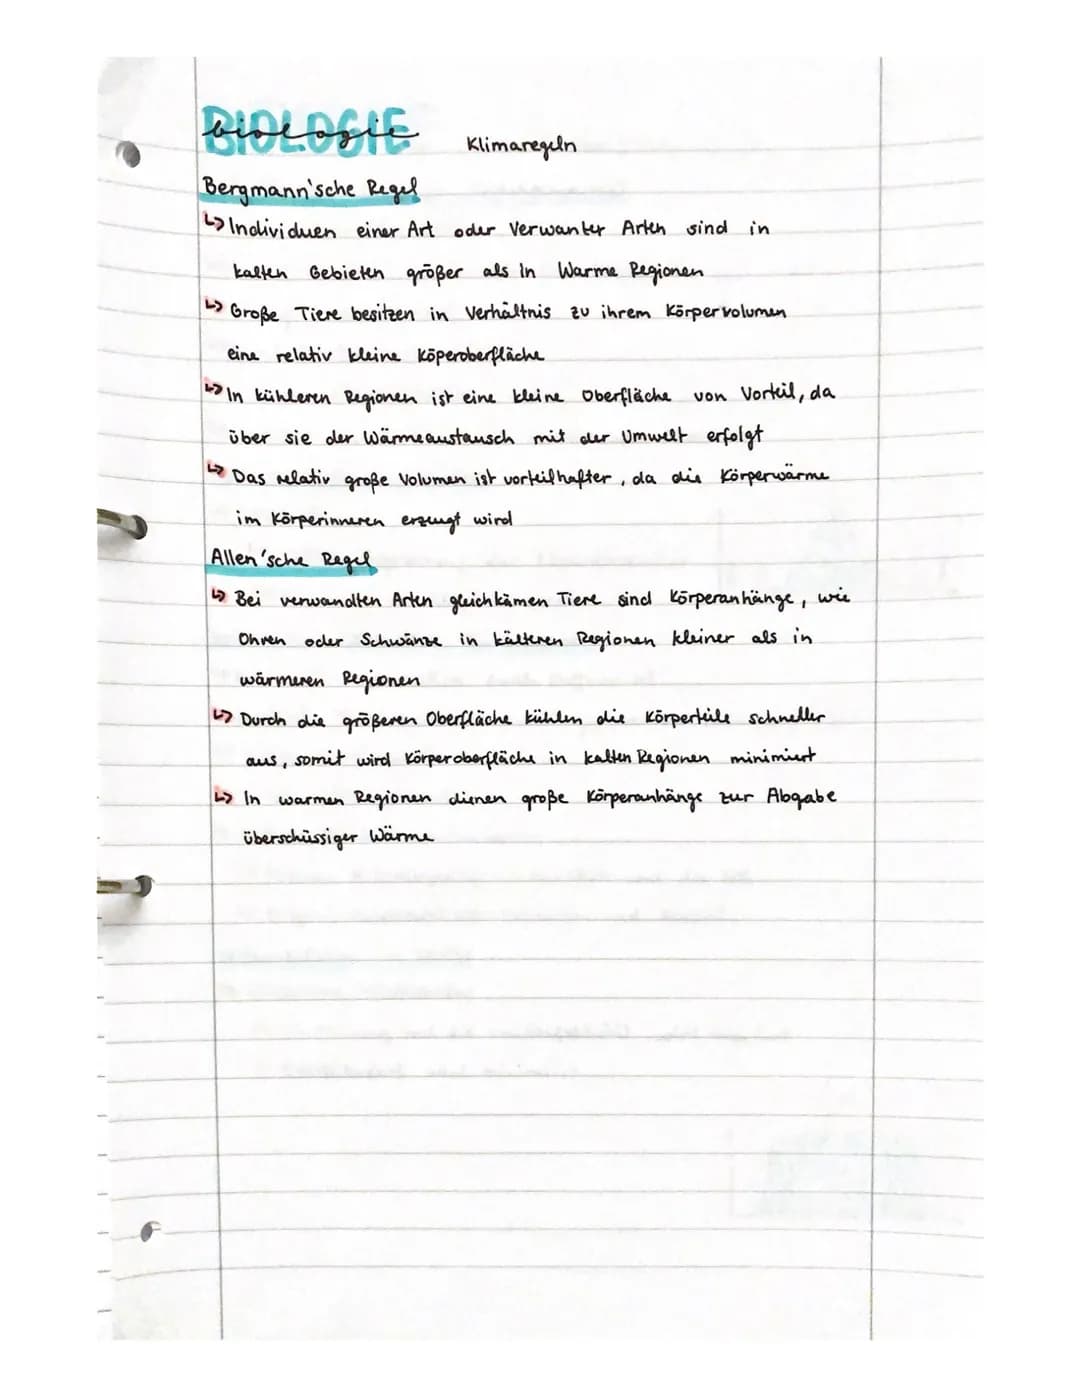 BIOLOGIE
biologie
Klimaregeln
Bergmann'sche Regel
↳ Individuen einer Art oder Verwanter Arten sind in
kalten Gebieten größer als in Warme Regionen
↳ Große Tiere besitzen in Verhältnis zu ihrem Körpervolumen
eine relativ kleine Köperoberfläche
↳ In kühleren Regionen ist eine kleine Oberfläche von Vorteil, da
über sie der Wärmeaustausch mit der Umwelt erfolgt
↳ Das relativ große Volumen ist vorteilhafter, da die Körperwärme
im Körperinneren erzeugt wird
Allen'sche Regel
↳ Bei verwandten Arten gleichkämen Tiere sind Körperanhänge, wie
Ohren oder Schwänze in kälteren Regionen kleiner als in
wärmeren Regionen
↳ Durch die größeren Oberfläche kühlen die Körperteile schneller
aus, somit wird Körperoberfläche in kalten Regionen minimiert
↳ In warmen Regionen dienen große Körperanhänge zur Abgabe
überschüssiger Wärme